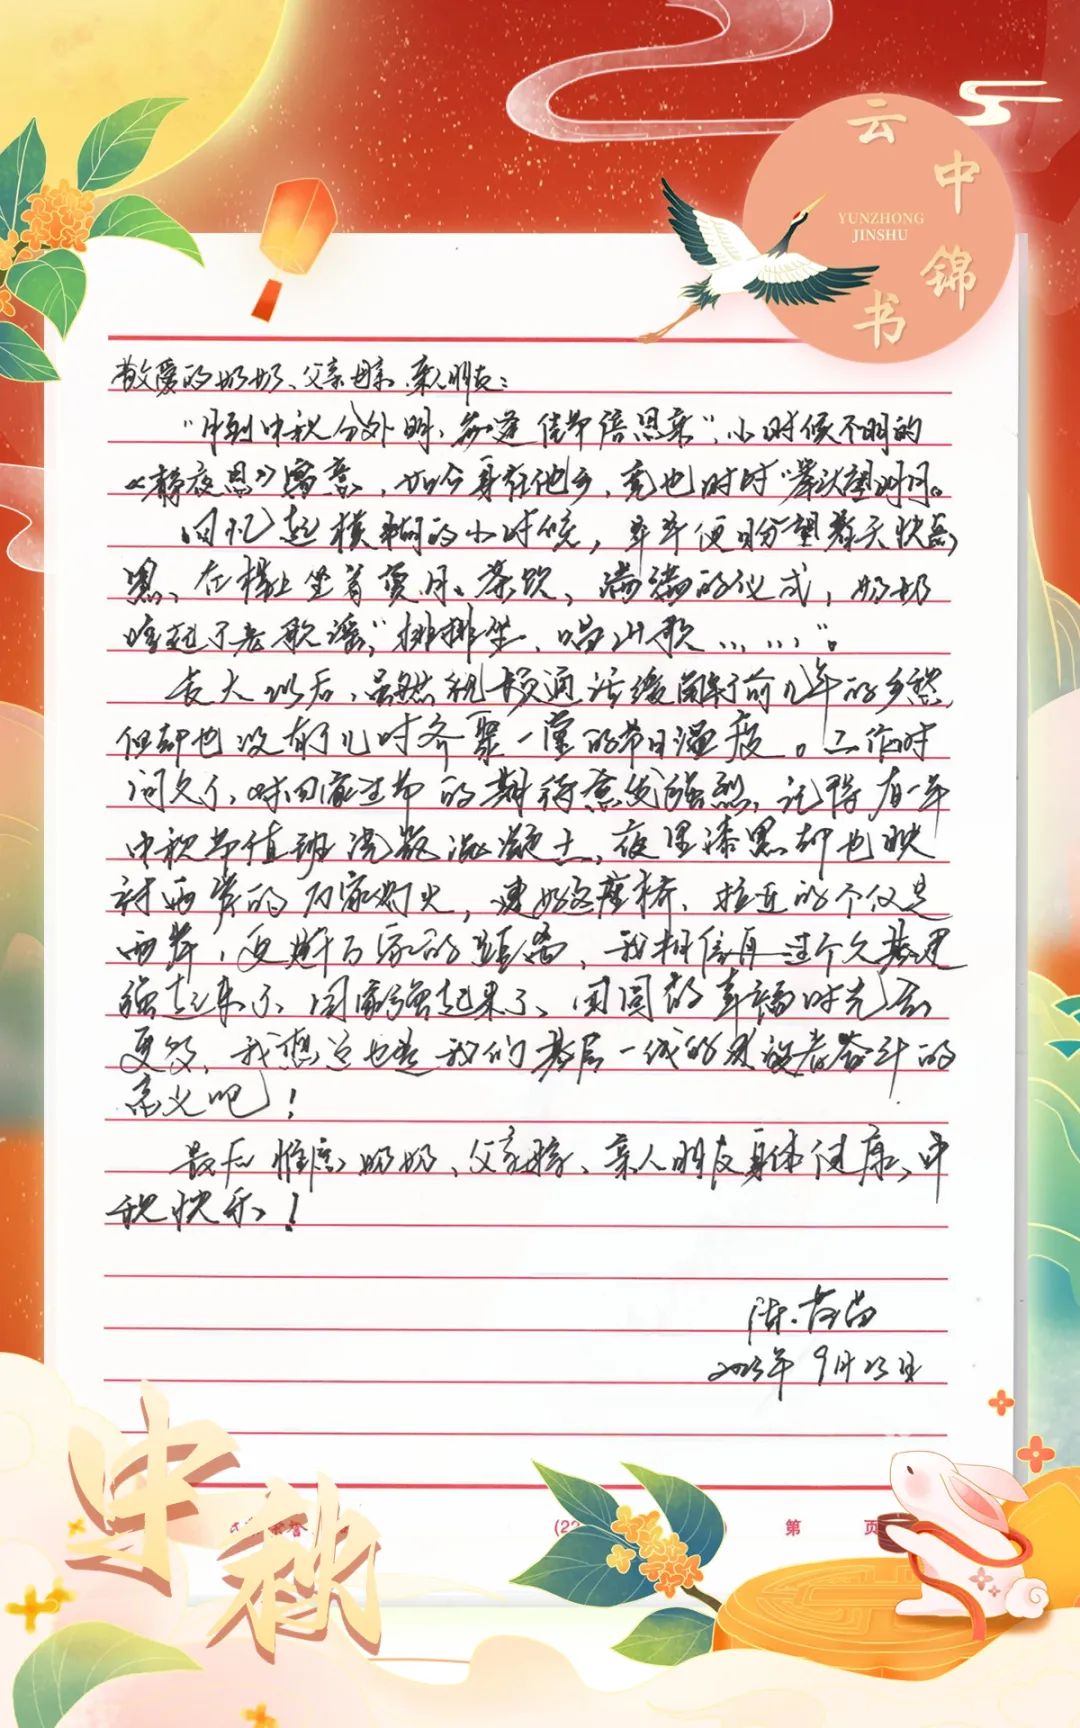 云中锦书
YUNZHONG
JINSHU
敬爱的奶奶、父亲母亲、亲人朋友：
“月到中秋分外明，每逢佳节倍思亲”，小时候不明的
《静夜思》寓意，如今身在他乡，竟也时时“举头望明月。
回忆起模糊的小时候，年年便盼望着天快点
黑、在楼上坐着赏月、茶饮，满满的仪式，奶奶
唱起了老歌谣，“排排坐，唱山歌……”。
长大以后，虽然视频通话缓解了前几年的乡愁，
但却也没有了儿时齐聚一堂的节日温度。工作时
间久了，对回家过节的期待愈发强烈，记得有一年
中秋节值班浇筑混凝土，夜里漆黑却也映
衬两岸的万家灯火，建好这座桥，拉近的不仅是
两岸，更是万家的距离，我相信再过不久基建
强起来了、国家强起来了、团圆的幸福时光会
更多，我想这也是我们基层一线的建设者奋斗的
意义吧！
最后惟愿奶奶、父亲母亲、亲人朋友身体健康、中
秋快乐！
陈
2023年9月23日
第 页
中秋